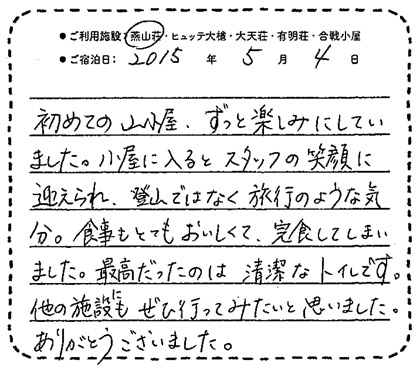 ●ご利用施設:燕山荘・ヒュッテ大槍・大天荘・有明荘・合戦小屋
●ご宿泊日: 2015 年 5 月 4 日
初めての山小屋、ずっと楽しみにしてい
ました。小屋に入るとスタッフの笑顔に
迎えられ、登山ではなく旅行のような気
分。食事もとてもおいしくて、完食してしまい
ました。最高だったのは 清潔なトイレです。
他の施設にも ぜひ行ってみたいと思いました。
ありがとうございました。